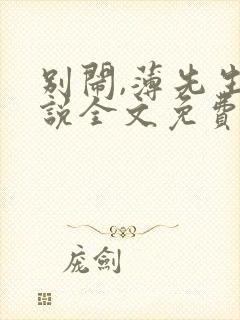 別鬧,薄先生
說全文免費
庞劍